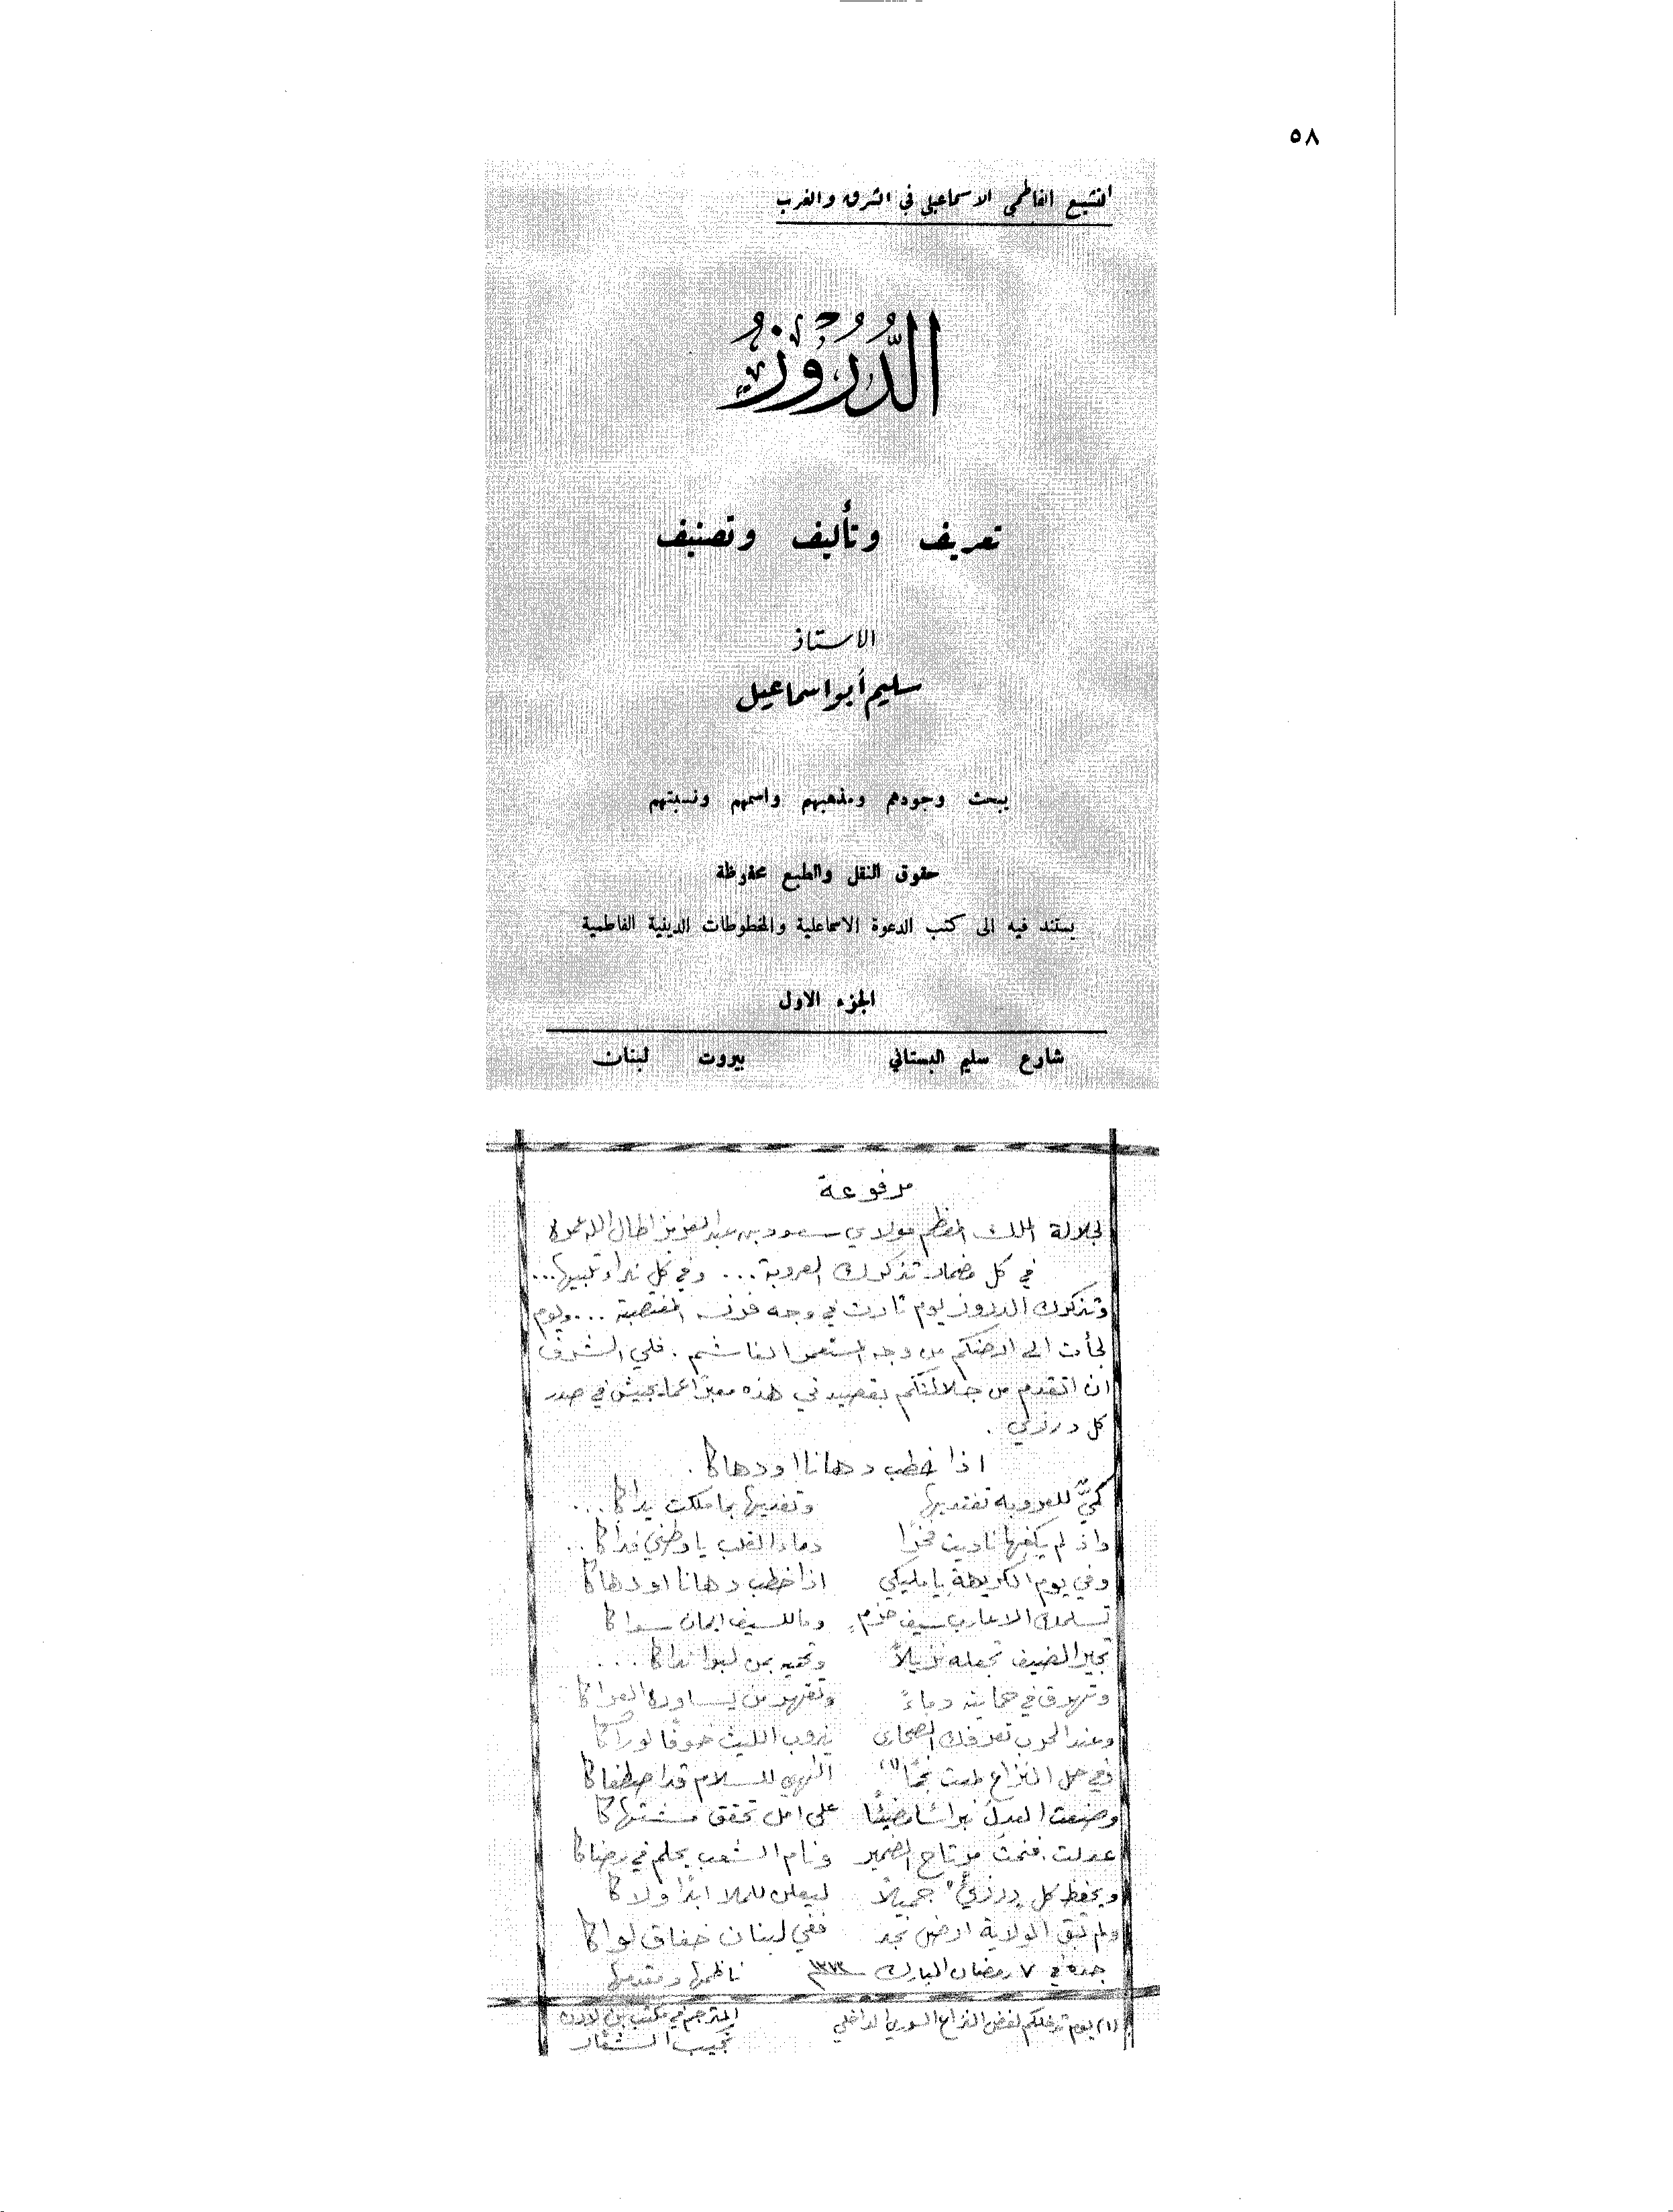 ٥٨
التشيع الفاطمي الاسماعيلي في الشرق والغرب
الدُّرُوز
تعريف وتأليف وتصنيف
الاستاذ
سليم أبو اسماعيل
يبحث وجودهم ومذهبهم واسمهم ونسبتهم
حقوق النقل والطبع محفوظة
يستند فيه الى كتب الدعوة الاسماعلية والمخطوطات الدينية الفاطمية
الجزء الاول
شارع سليم البستاني بيروت لبنان
مرفوعة
لجلالة الملك المعظم مولاي سعود بن عبد العزيز اطال الله عمره
في كل مضمار تذكرك العروبة... وفي كل نداء تلبيها...
وتذكرك الدروز يوم ثارت في وجه فرنسه المغتصبة ... ويوم
لجأت الى ارضكم من وجه المستعمر الغاشم . فلي الشرف
ان اتقدم من جلالتكم بقصيدتي هذه معبرًا عما يجيش في صدر
كل درزي .
اذا خطب دهانا او دهاكا .
كميٌّ للعروبه تفتديها وتفديها بما ملكت يداكا ...
واذ لم يكفها ناديت فخرًا دماء القلب يا وطني فداكا ..
وفي يوم الكريهة يا مليكي اذا خطب دهانا او دهاكا
تسلمك الاعارب سيف حزم وما للسيف ايمان سواكا
تجير الضيف تجعله نزيلاً وتحميه بمن لبوا نداكا ...
وتهرق في حمايته دماءً وتقهر من يساوره العراكا
وعند الحرب تعرفك الصحارى يذوب الليث خوفًا لو رآكا
وفي حل النزاع لمعت نجمًا (١) الهي للسلام قد اصطفاكا
وضعت العدل نبراسًا مضيئًا على امل تحقق مشتهاكا
عدلت . فنمت مرتاح الضمير ونام الشعب يحلم في رضاكا
ويحفظ كل درزيٍّ جميلاً ليعلن للملا ابدًا ولاكا
ولم تبق الولاية ارض نجد ففي لبنان خفاق لواكا
جده في ٧ رمضان المبارك ١٣٧٣ ناظمها ومقدمها
(١) يوم تدخلكم لفض النزاع السوري الداخلي المترجم في مكتب بن لادن
نجيب الشقار